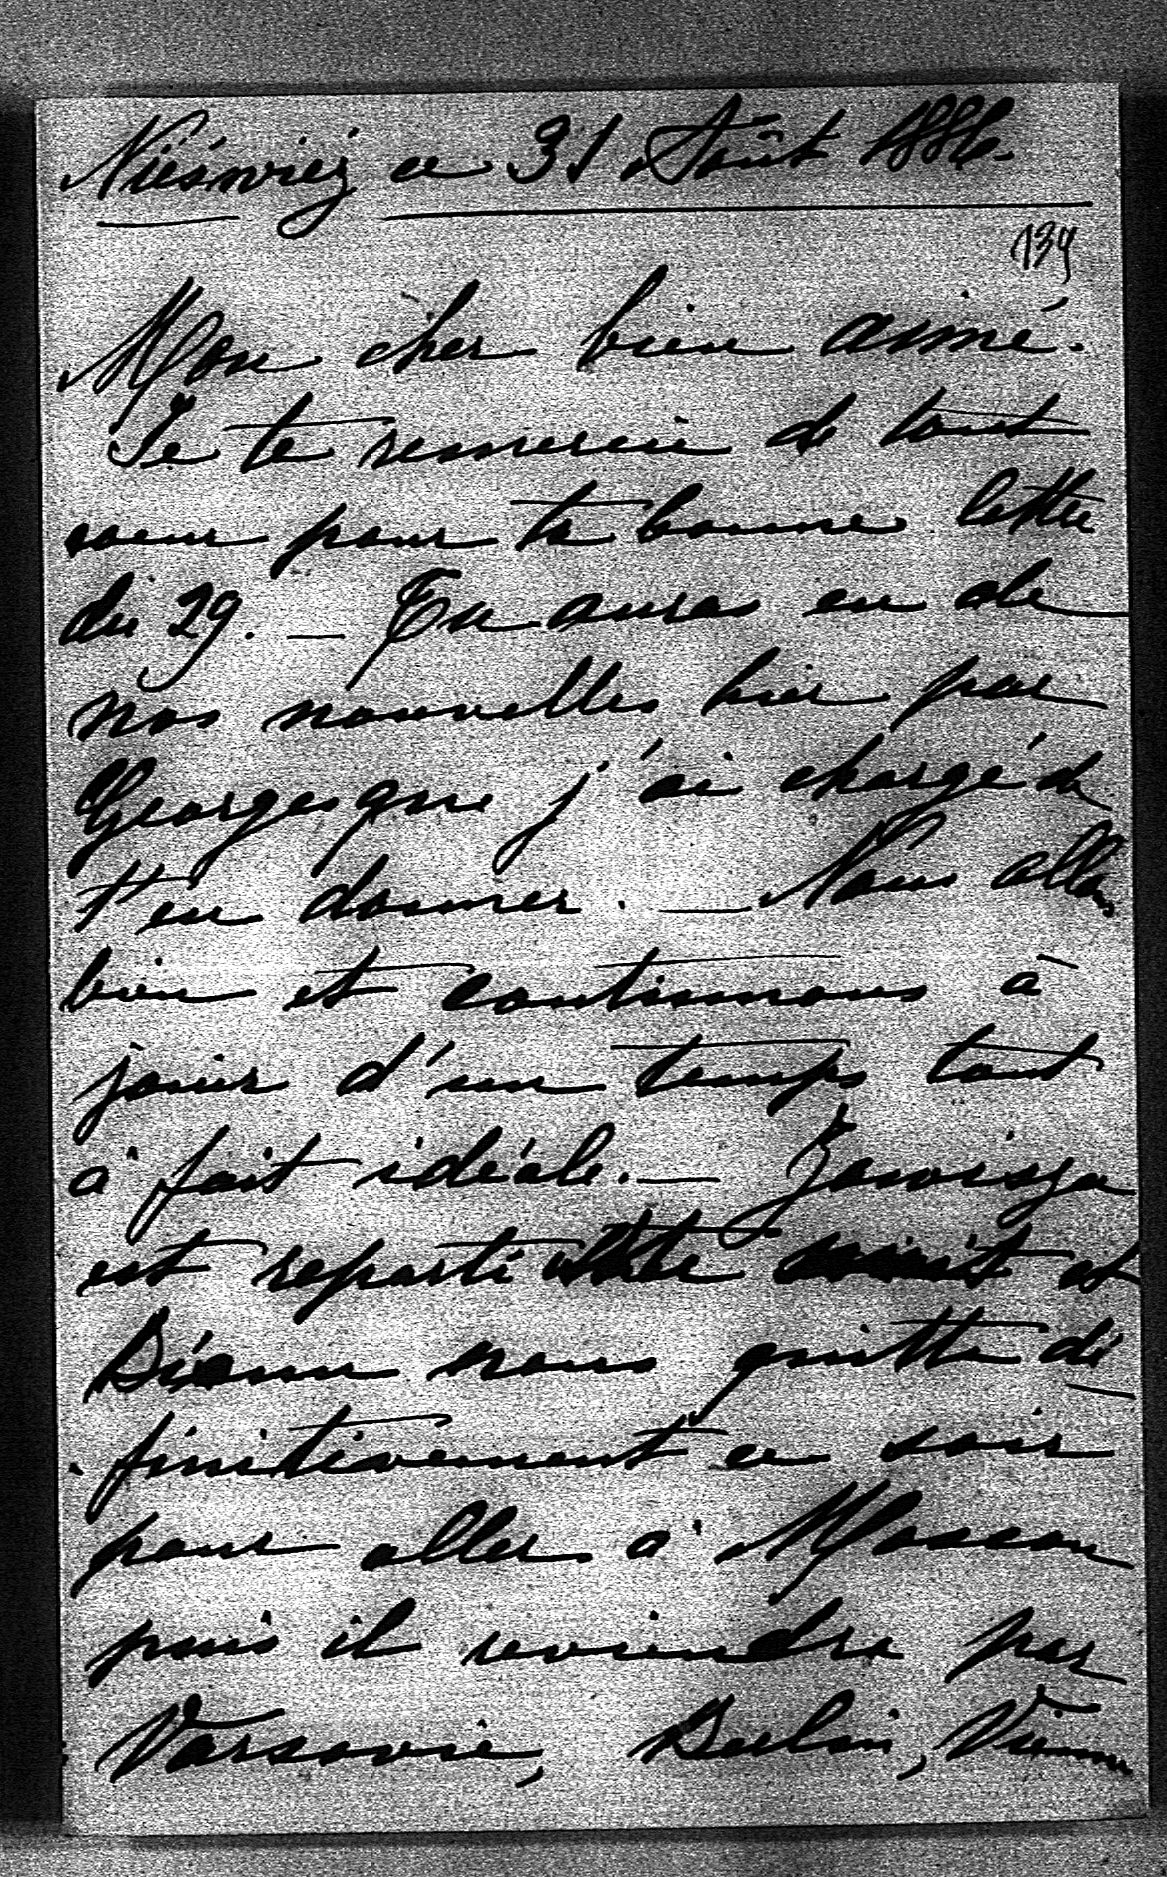 Nieśwież ce 31 Août 1886.
139
Mon cher bien aimé.
Je te remercie de tout
coeur pour ta bonne lettre
du 29. — Tu auras eu de
nos nouvelles hier par
Georges que j'ai chargé de
t'en donner. — Nous allons
bien et continuons à
jouir d'un temps tout
à fait idéale. — Zawisza
est reparti cette nuit et
nous quitte dé
finitivement ce soir
pour aller à Moscou
puis il reviendra par
Varsovie, Berlin, Vienne